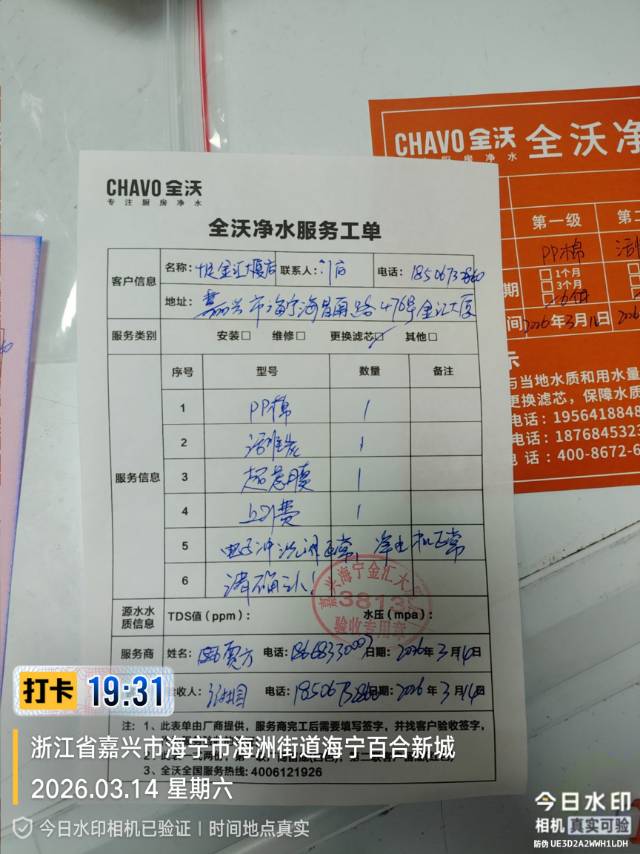 CHAVO 全沃
专注厨房净水
全沃净水服务工单
客户信息
名称: 金汇大厦店 联系人: 门店 电话:
地址: 嘉兴市海宁海昌南路476号金汇大厦
服务类别 安装□ 维修□ 更换滤芯☑ 其他□
服务信息
序号 型号 数量 备注
1 PP棉 1
2 活性炭 1
3 超滤膜 1
4 上门费 1
5 电子冲洗阀正常, 净水机正常
6 请确认!
嘉兴海宁金汇大
3813
验收专用章
源水水质信息 TDS值(ppm): 水压(mpa):
服务商 姓名: 电话: 日期: 2026年3月14日
验收人 电话: 日期: 2026年3月14日
注: 1、此表单由厂商提供,服务商完工后需要填写签字,并找客户验收签字,
3、全沃全国服务热线: 4006121926
CHAVO 全沃 全沃净
专注厨房净水
第一级 第二
PP棉 活性
期 □1个月
□3个月
间 2026年3月14日 2026
示
与当地水质和用水量
更换滤芯,保障水质
电话: 1956418848
电话: 1876845323
电话: 400-8672-6
打卡 19:31
浙江省嘉兴市海宁市海洲街道海宁百合新城
2026.03.14 星期六
今日水印相机已验证 | 时间地点真实
今日水印
相机 真实可验
防伪 UE3D2A2WWH1LDH